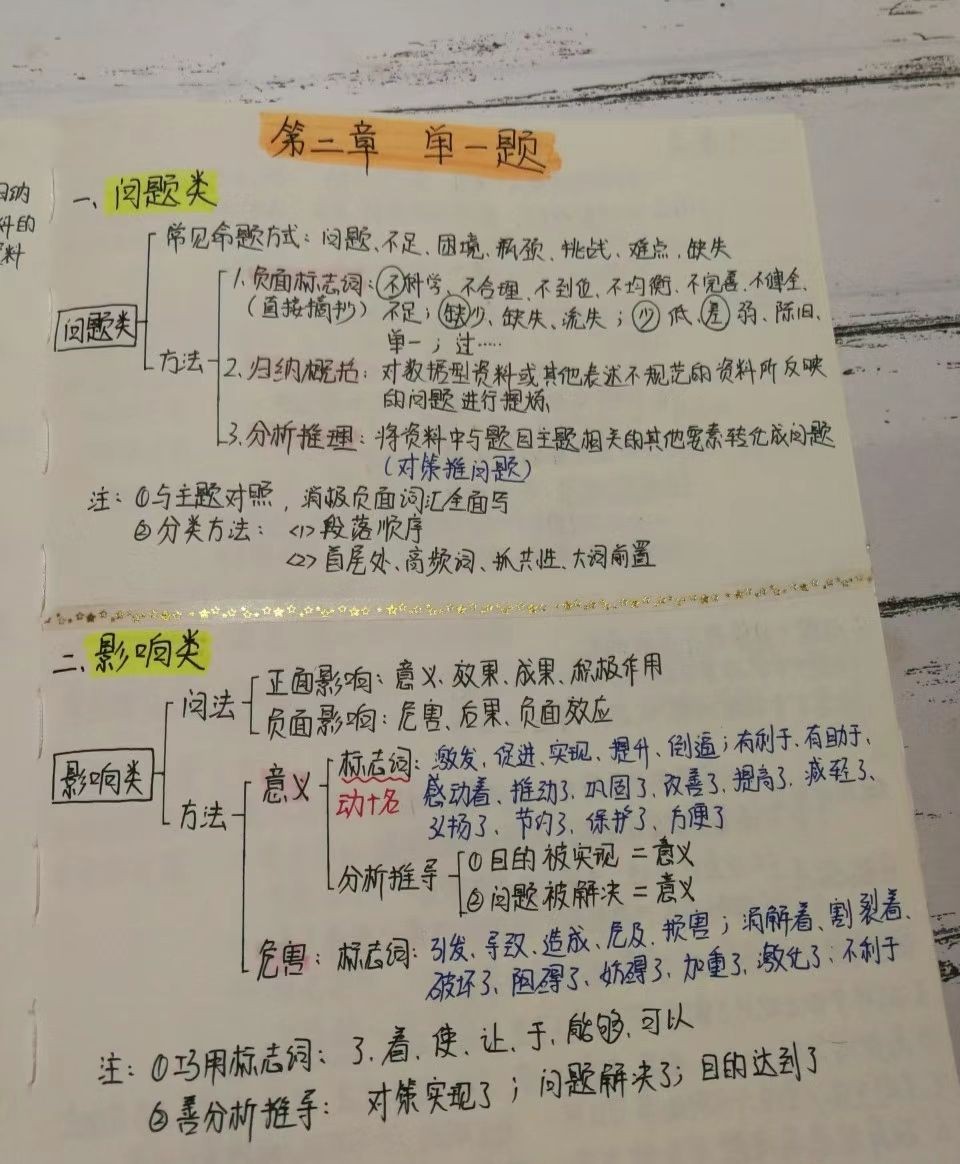 第二章 单一题
一、问题类
常见命题方式：问题、不足、困境、瓶颈、挑战、难点、缺失
问题类
方法
1.负面标志词：不科学、不合理、不到位、不均衡、不完善、不健全、
(直接摘抄) 不足；缺少、缺失、流失；少、低、差、弱、陈旧、
单一；过……
2.归纳概括：对数据型资料或其他表述不规范的资料所反映
的问题进行提炼、
3.分析推理：将资料中与题目主题相关的其他要素转化成问题
(对策推问题)
注：①与主题对照，消极负面词汇全面写
②分类方法：<1>段落顺序
<2>首尾处、高频词、抓共性、大词前置
二、影响类
影响类
问法
正面影响：意义、效果、成果、积极作用
负面影响：危害、后果、负面效应
方法
意义
标志词：激发、促进、实现、提升、倒逼；有利于、有助于、
动+名 感动着、推动了、巩固了、改善了、提高了、减轻了、
弘扬了、节约了、保护了、方便了
分析推导
①目的被实现=意义
②问题被解决=意义
危害：标志词：引发、导致、造成、危及、损害；消解着、割裂着、
破坏了、阻碍了、妨碍了、加重了、激化了、不利于
注：①巧用标志词：了、着、使、让、于、能够、可以
②善分析推导：对策实现了；问题解决了；目的达到了
归纳
料的
料